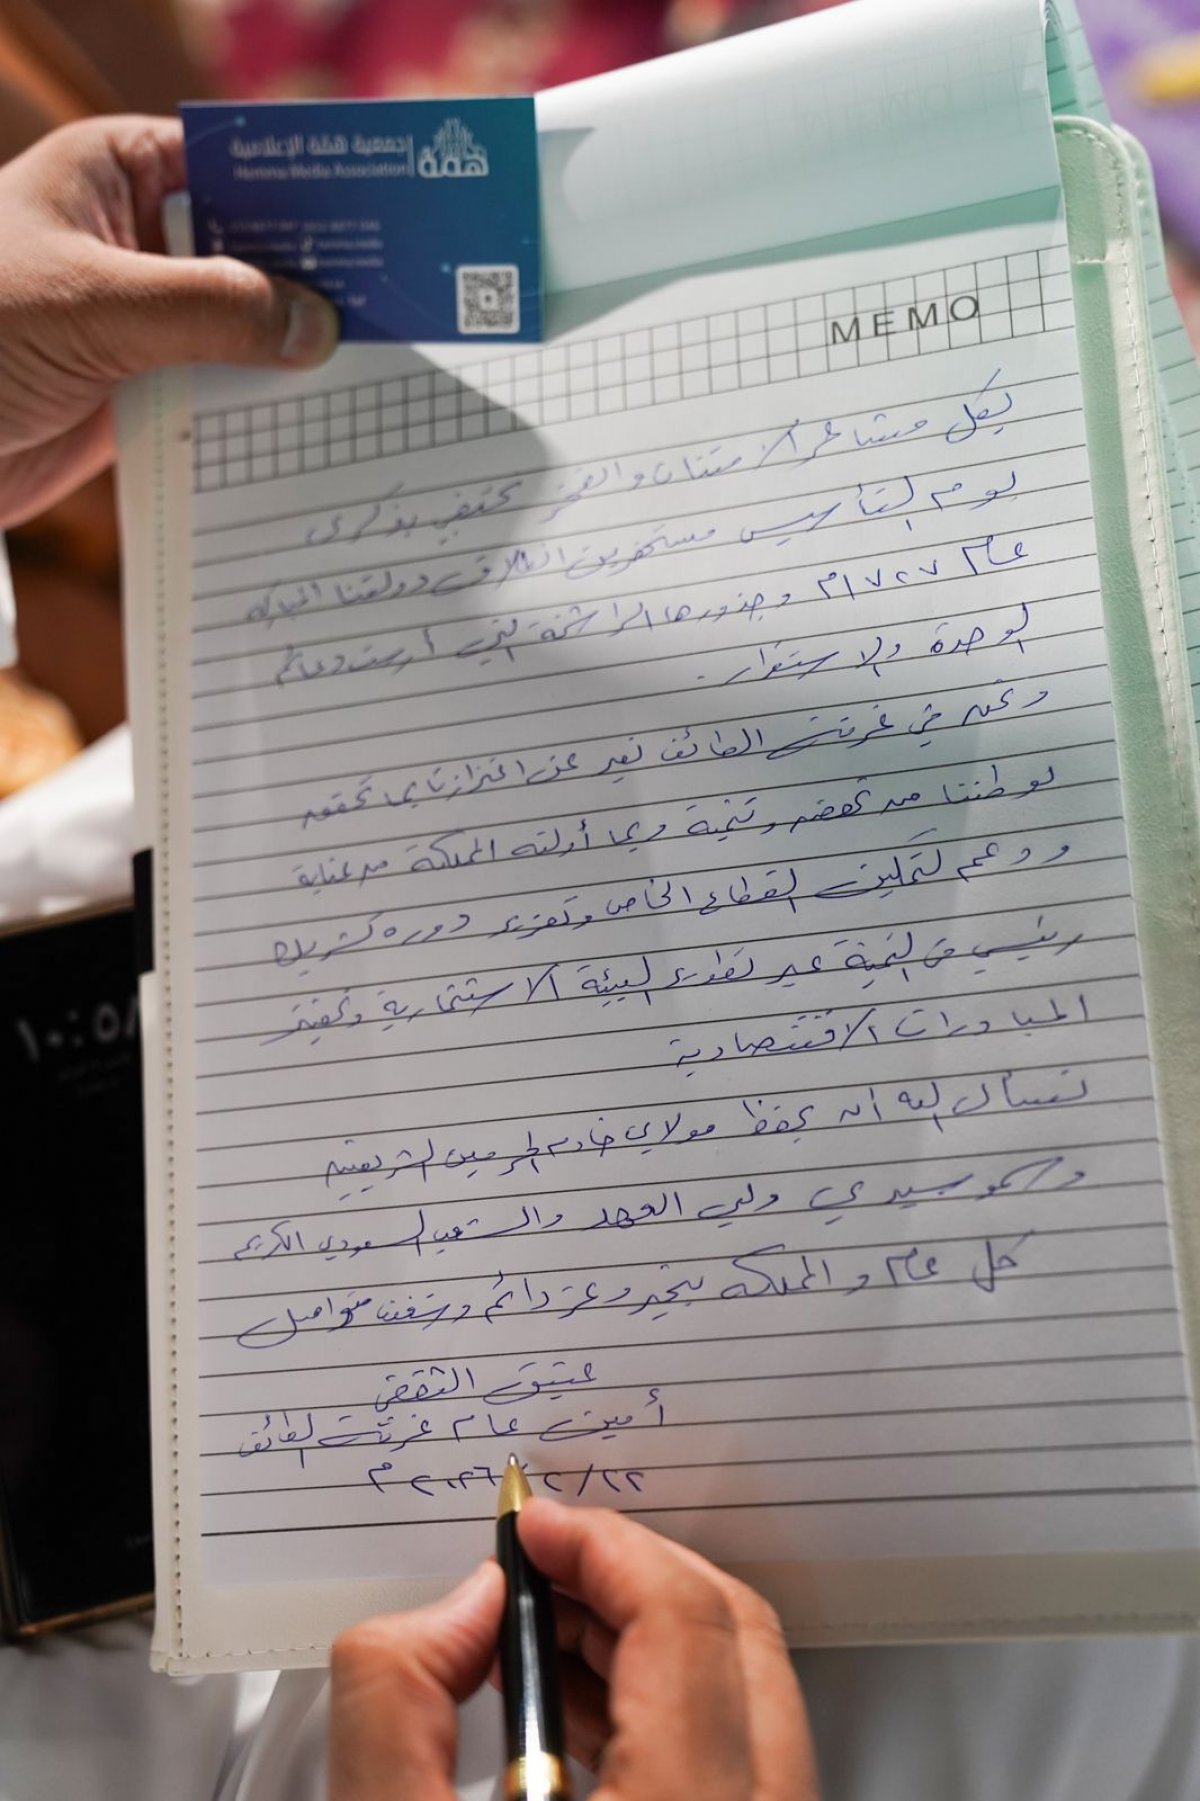 جمعية همّة الإعلامية
همّة
Hemma Media Association
MEMO
بكل مشاعر الامتنان والفخر نحتفي بذكرى
يوم التأسيس مستحضرين انطلاق دولتنا المباركة
عام ١٧٢٧م وجذورها الراسخة التي أرست دعائم
الوحدة والاستقرار.
ونحن في غرفة الطائف نعبر عن اعتزازنا بما تحققه
لوطننا من نهضة وتنمية وبما أولته المملكة من عناية
ودعم لتمكين القطاع الخاص وتعزيز دوره كشريك
رئيسي في التنمية عبر تطوير البيئة الاستثمارية وتحفيز
المبادرات الاقتصادية
نسأل الله أن يحفظ مولاي خادم الحرمين الشريفين
وسمو سيدي ولي العهد والشعب السعودي الكريم
كل عام والمملكة بخير وعز دائم ورفعة متواصل
عتيق الثقفي
أمين عام غرفة الطائف
٢٢/٢ ٢٠٢٦م
١٠:٥٨